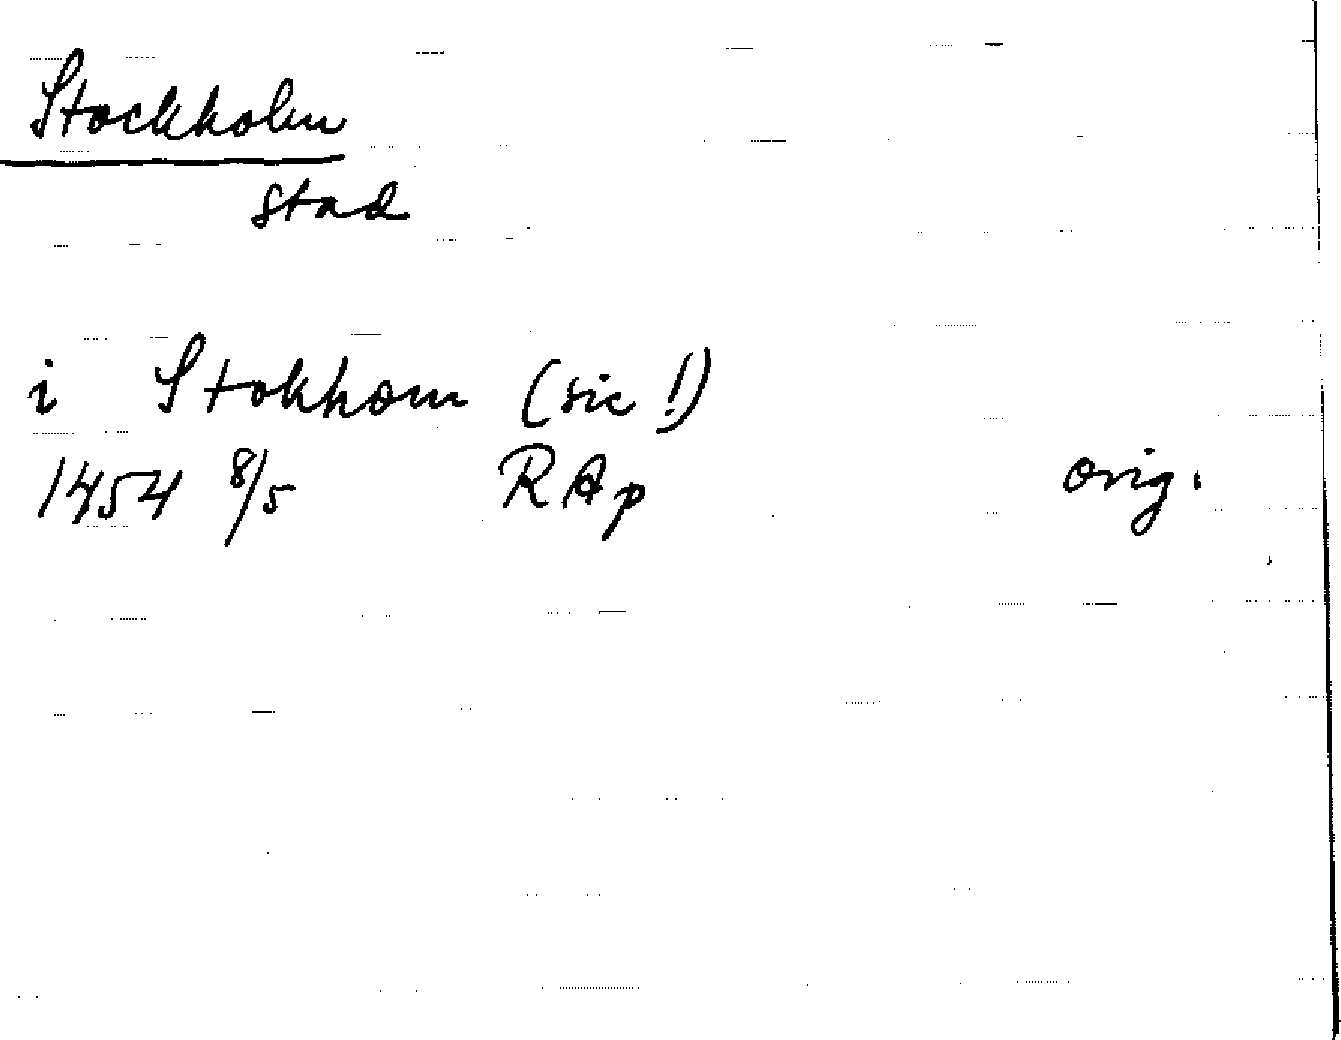 Stockholm
stad
i Stokhom (sic!)
1454 8/5 RAp orig.